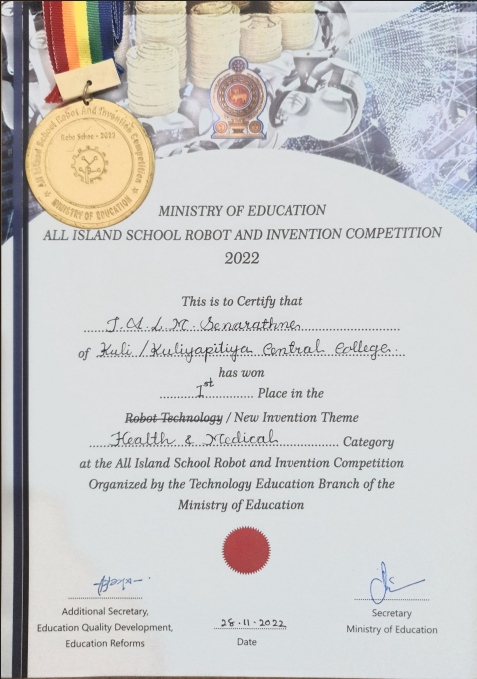 All Island School Robot And Invention Competition
Robo Schoo - 2022
MINISTRY OF EDUCATION
MINISTRY OF EDUCATION
ALL ISLAND SCHOOL ROBOT AND INVENTION COMPETITION
2022
This is to Certify that
J.A.L.M. Senarathne
of Kuli / Kuliyapitiya Central College.
has won
1st Place in the
Robot Technology / New Invention Theme
Health & Medical Category
at the All Island School Robot and Invention Competition
Organized by the Technology Education Branch of the
Ministry of Education
Additional Secretary,
Education Quality Development,
Education Reforms
28.11.2022
Date
Secretary
Ministry of Education